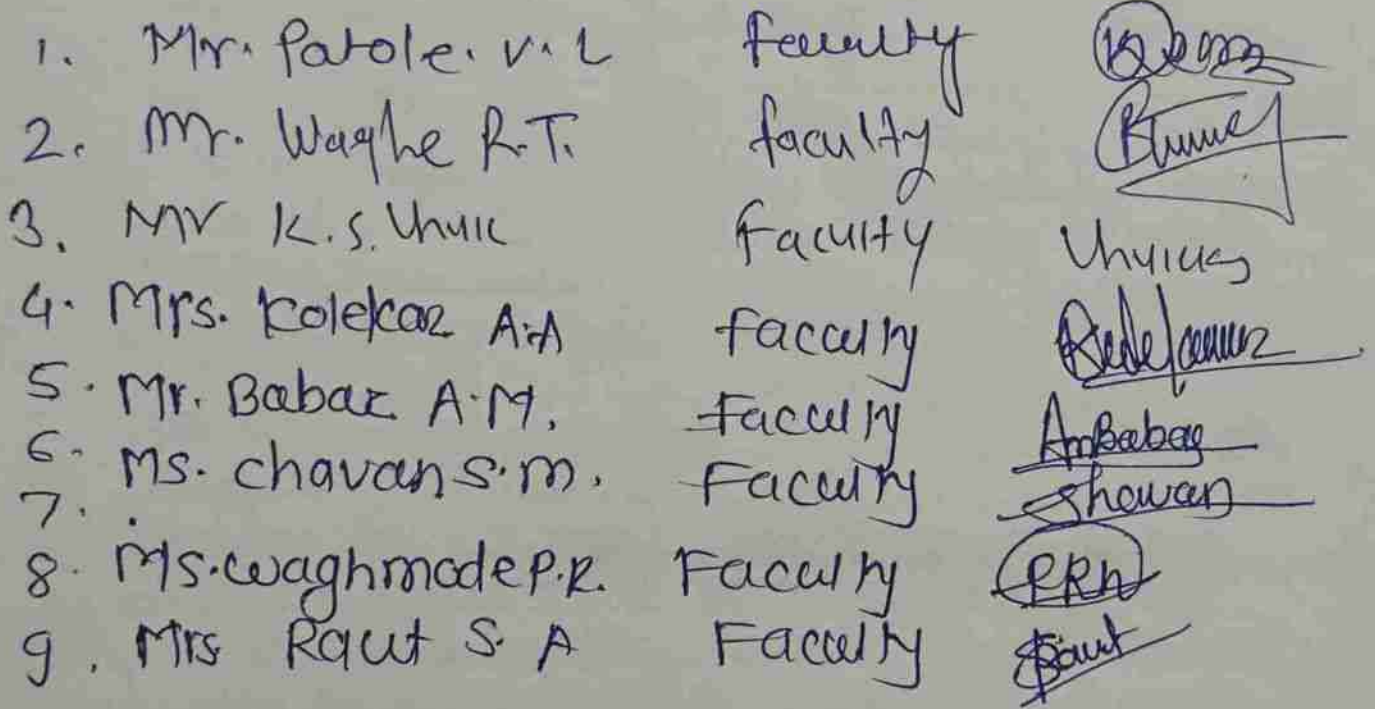 1. Mr. Patole. V. L Faculty
2. Mr. Waghe R.T. faculty
3. Mr K.S. Faculty
4. Mrs. Kolekar A.A faculty
5. Mr. Babar A.M. Faculty AmBabar
6. Ms. Chavan S.M. Faculty Shavan
7. .
8. Ms. Waghmode P.R. Faculty PRW
9. Mrs Raut S. A Faculty Raut